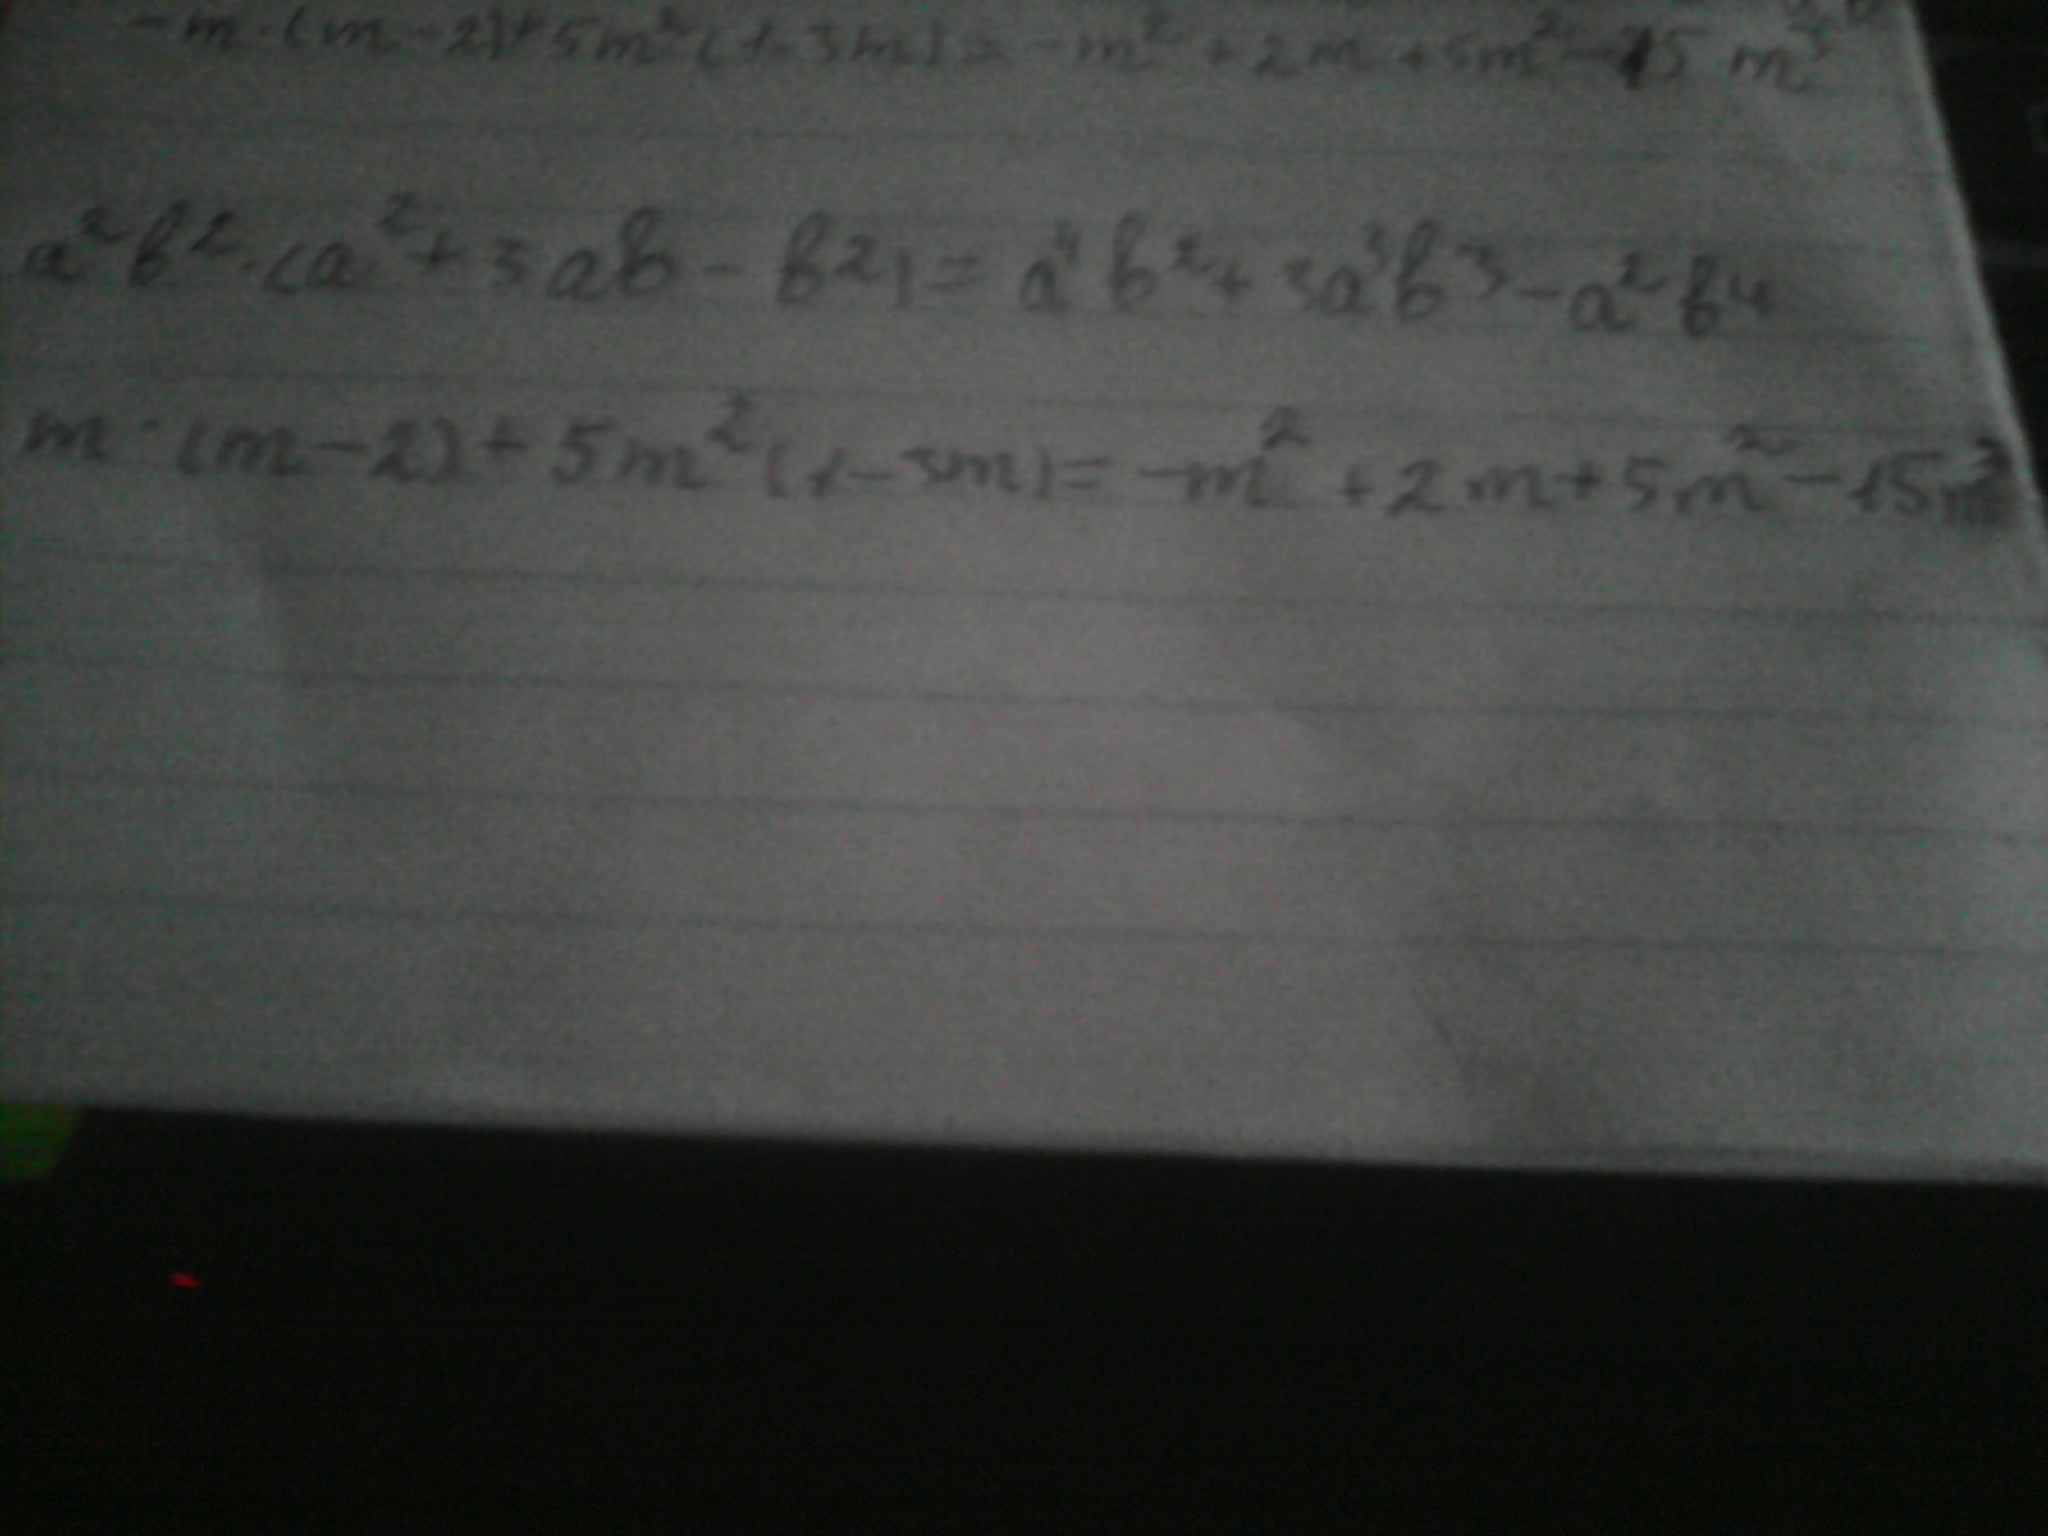 -m·(m-2)+5m²(1-3m)=-m²+2m+5m²-15m³
a²b²·(a²+3ab-b²)=a⁴b²+3a³b³-a²b⁴
m·(m-2)+5m²(1-3m)=-m²+2m+5m²-15m³